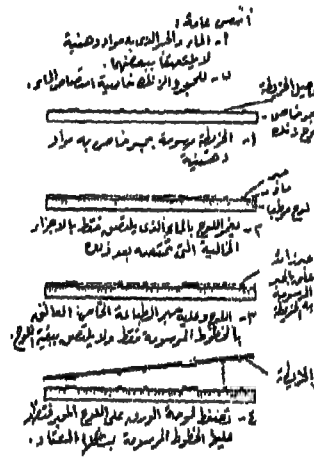 أسس عامة :
١- الماء والحبر الذي به مواد دهنية
لا يلتصقا ببعضهما.
٢- للحجر والزنك خاصية امتصاص الماء.
الخريطة
حبر خاص
لوح زنك
١- الخريطة مرسومة بحبر خاص به مواد
دهنية
حبر
ماء
لوح مرطب
٢- اللوح بالماء الذي يلتصق فقط بالأجزاء
الخالية التي تمتصه بعد ذلك
الحبر
المرسومة
به الخريطة
٣- اللوح وعليه حبر الطباعة الخاص العالق
بالخطوط المرسومة فقط ولا يلتصق ببقية اللوح.
٤- تضغط لوحة الورق على اللوح المحبر فتظهر
عليها الخطوط المرسومة